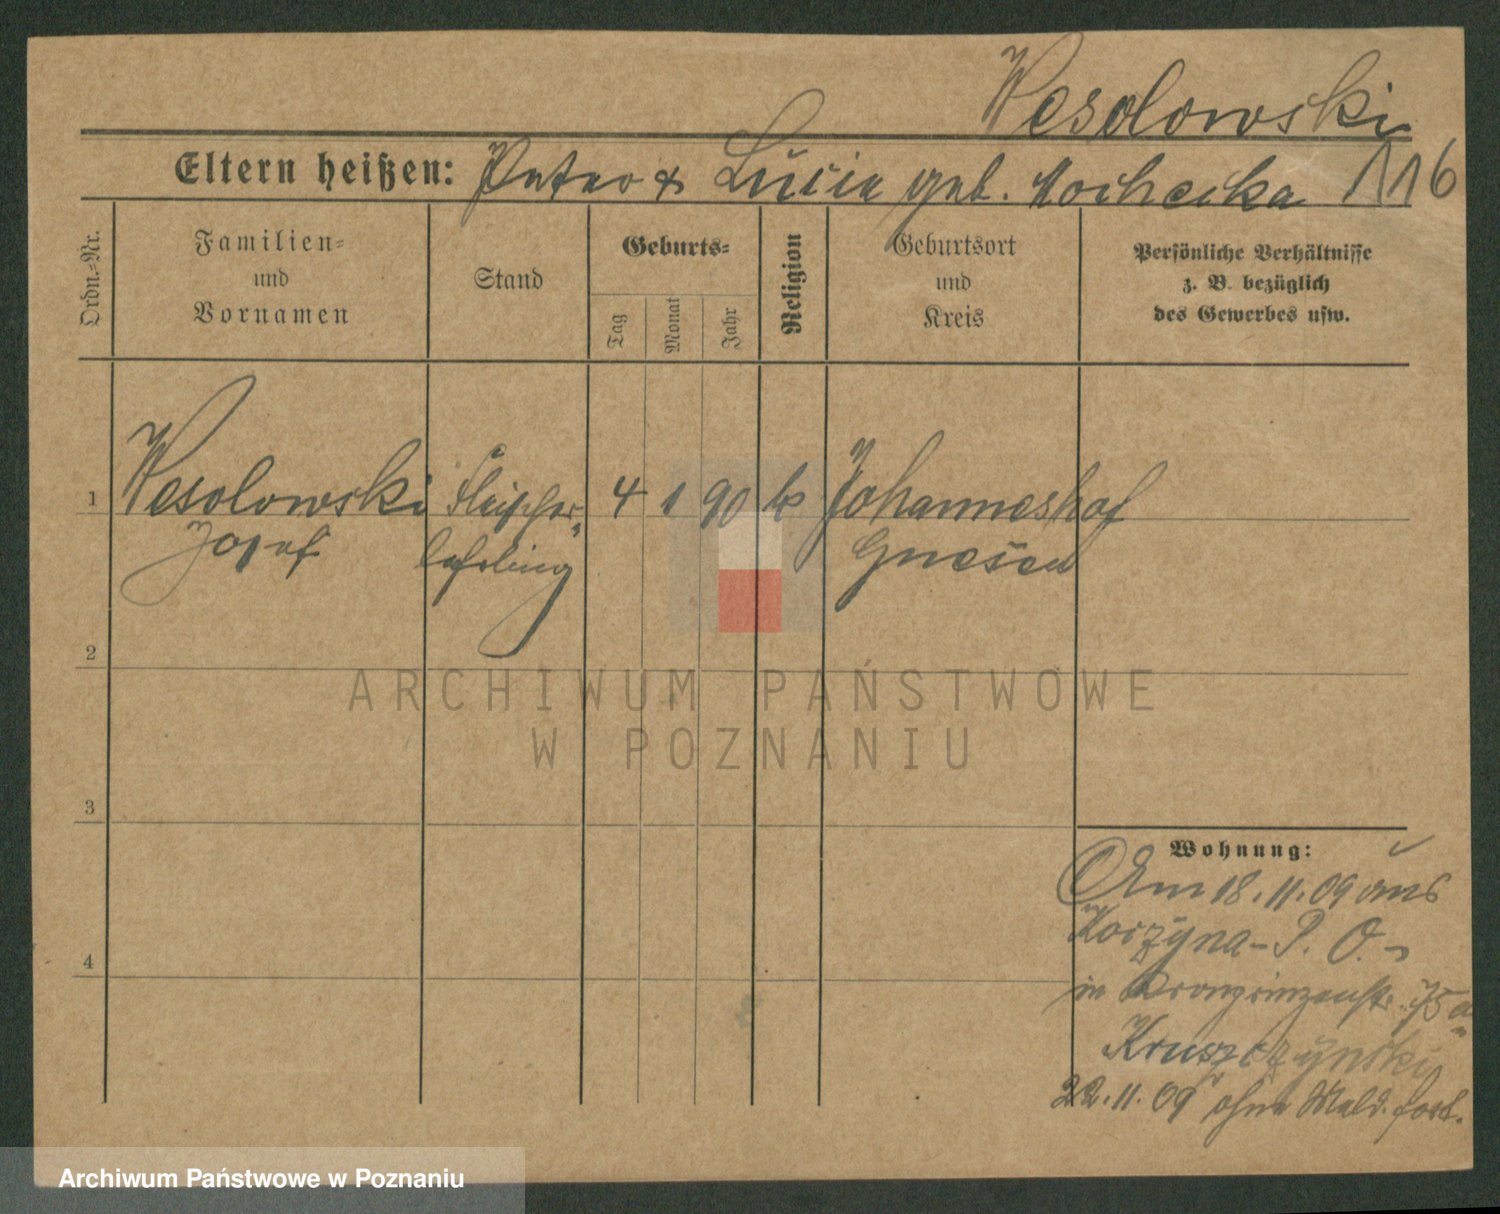 Wesolowski
Eltern heißen: Peter & Lucie geb. 116
Ordn.=Nr.
Familien=
und
Vornamen
Stand
Geburts=
Tag
Monat
Jahr
Religion
Geburtsort
und
Kreis
Persönliche Verhältnisse
z. B. bezüglich
des Gewerbes usw.
1 Wesolowski Fleischer= 4 1 90 k Johanneshof
Josef lehrling Gnesen
2
ARCHIWUM PAŃSTWOWE
W POZNANIU
3
Wohnung:
Am 18.11.09 aus
Korzyna - P. O. -
4
in Kronprinzenstr. 75a
Kruszczynski
22.11.09 ohne Meld. fort.
Archiwum Państwowe w Poznaniu